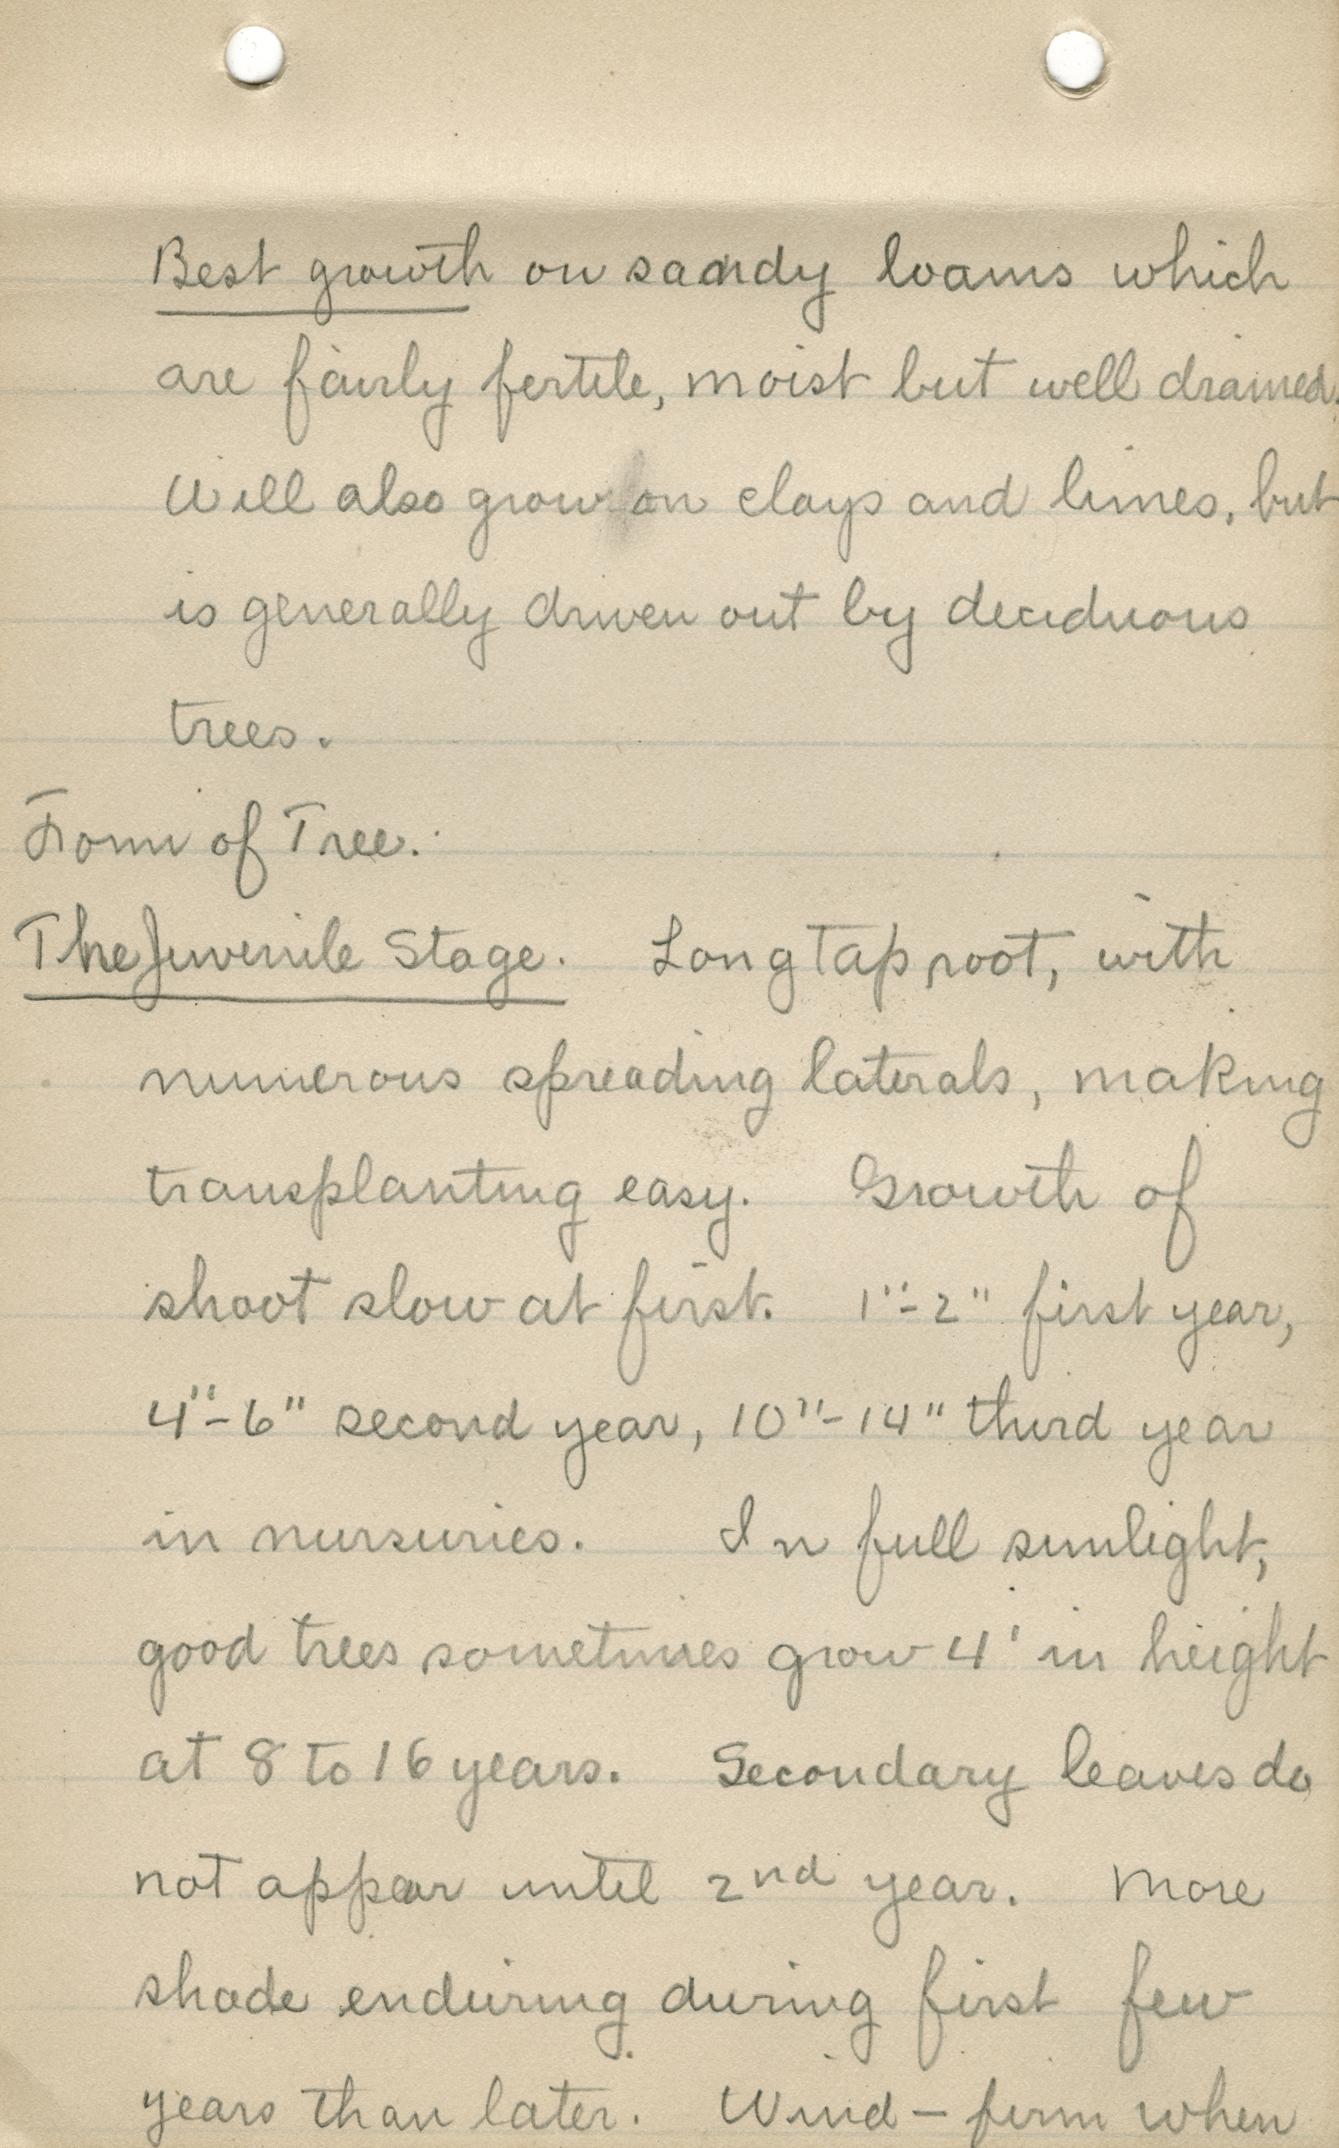 Best growth on sandy loams which
are fairly fertile, moist but well drained.
Will also grow on clays and limes, but
is generally driven out by deciduous
trees.
Form of Tree.
The Juvenile Stage. Long tap root, with
numerous spreading laterals, making
transplanting easy. Growth of
shoot slow at first. 1"-2" first year,
4"-6" second year, 10"-14" third year
in nurseries. In full sunlight,
good trees sometimes grow 4' in height
at 8 to 16 years. Secondary leaves do
not appear until 2nd year. More
shade enduring during first few
years than later. Wind-firm when